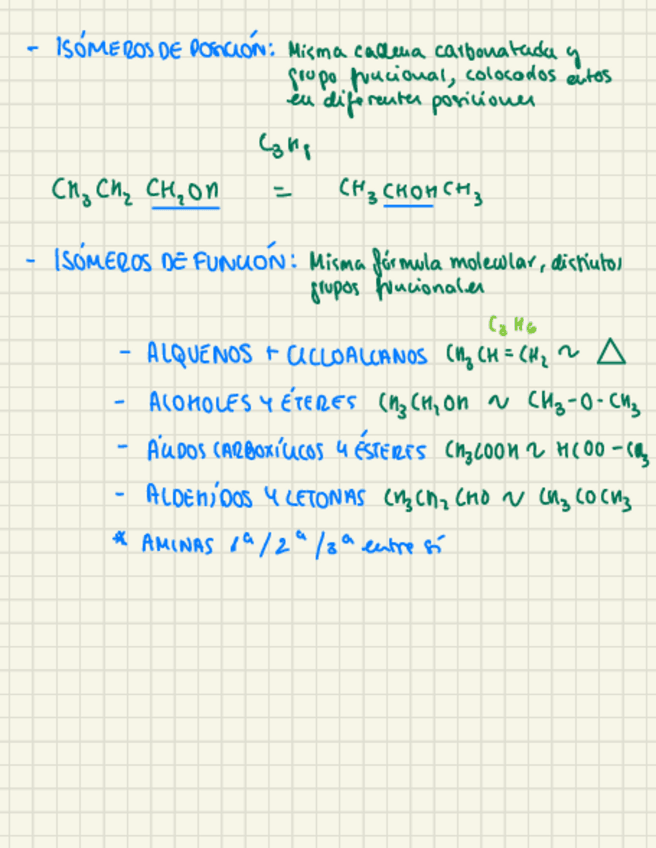 - ISÓMEROS DE POSICIÓN: Misma cadena carbonatada y
grupo funcional, colocados estos
en diferentes posiciones
C3H8
CH3CH2 CH2OH = CH3 CHOH CH3
- ISÓMEROS DE FUNCIÓN: Misma fórmula molecular, distintos
grupos funcionales
C3H6
- ALQUENOS + CICLOALCANOS CH3CH=CH2 ~ △
- ALCOHOLES Y ÉTERES CH3CH2OH ~ CH3-O-CH3
- ÁCIDOS CARBOXÍLICOS Y ÉSTERES CH3COOH ~ HCOO-CH3
- ALDEHÍDOS Y CETONAS CH3CH2CHO ~ CH3COCH3
* AMINAS 1ª/2ª/3ª entre sí